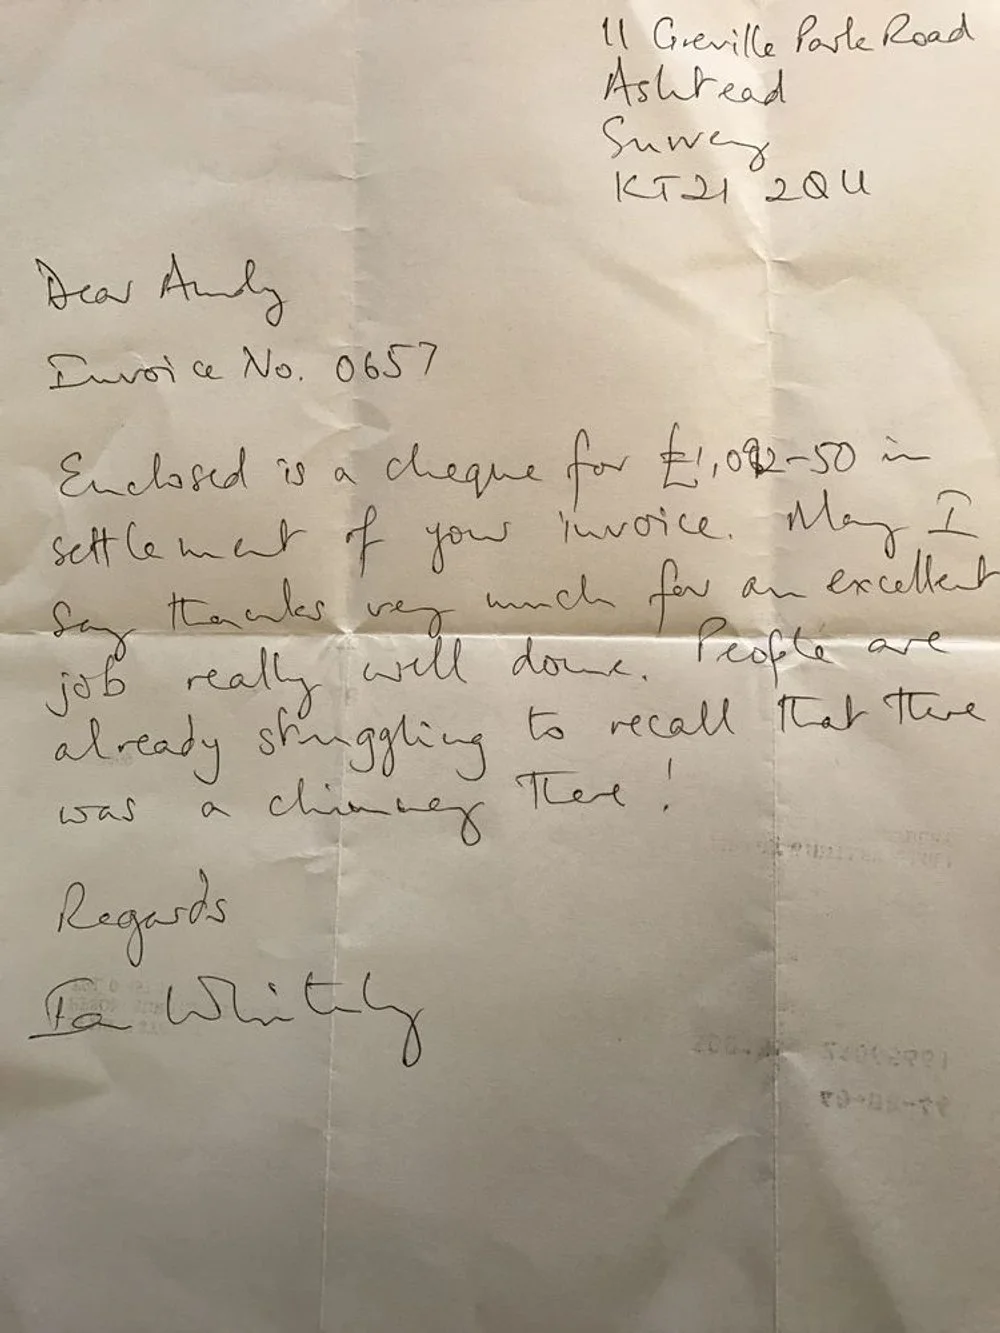 11 Greville Park Road
Ashtead
Surrey
KT21 2QU
Dear Andy
Invoice No. 0657
Enclosed is a cheque for £1,092-50 in
settlement of your invoice. May I
say thanks very much for an excellent
job really well done. People are
already struggling to recall that there
was a chimney there!
Regards
Ian Whitely